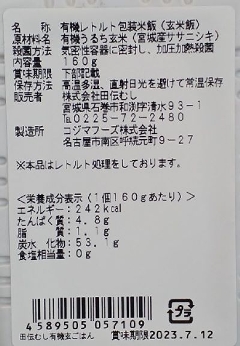 名　称　有機レトルト包装米飯（玄米飯）
原材料名　有機うるち玄米（宮城産ササニシキ）
殺菌方法　気密性容器に密封し、加圧加熱殺菌
内容量　160g
賞味期限　下部記載
保存方法　高温多湿、直射日光を避けて常温保存
販売者　株式会社田伝むし
宮城県石巻市和渕字清水93-1
℡0225-72-2480
製造所　コジマフーズ株式会社
名古屋市南区呼続元町9-27
※本品はレトルト処理をしております。
<栄養成分表示（1個160gあたり）>
エネルギー：242kcal
たんぱく質：4.8g
脂　　質：1.1g
炭水　化物：53.1g
食塩相当量：0g
4589505057109
プラ
田伝むし有機玄ごはん　賞味期限2023.7.12